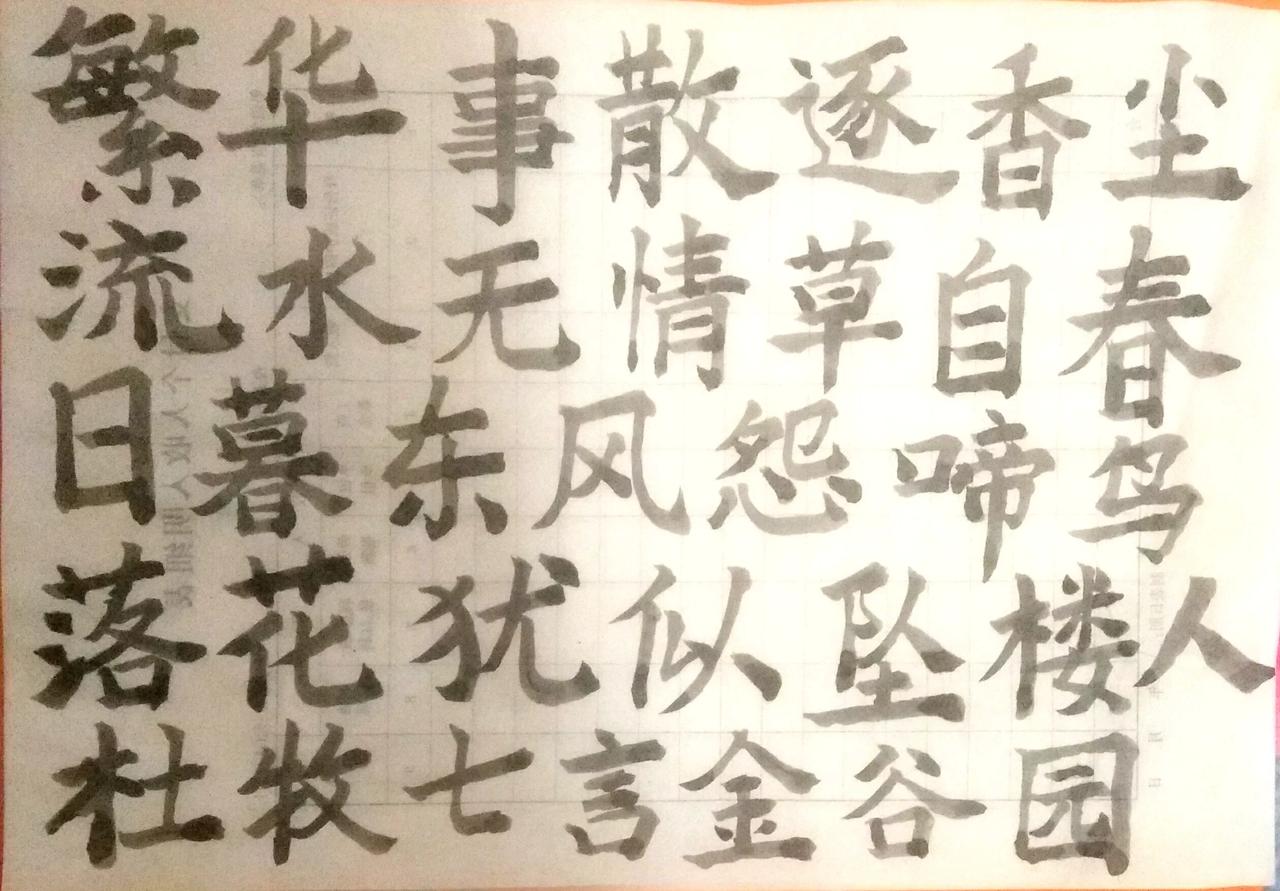 繁华事散逐香尘
流水无情草自春
日暮东风怨啼鸟
落花犹似坠楼人
杜牧七言金谷园